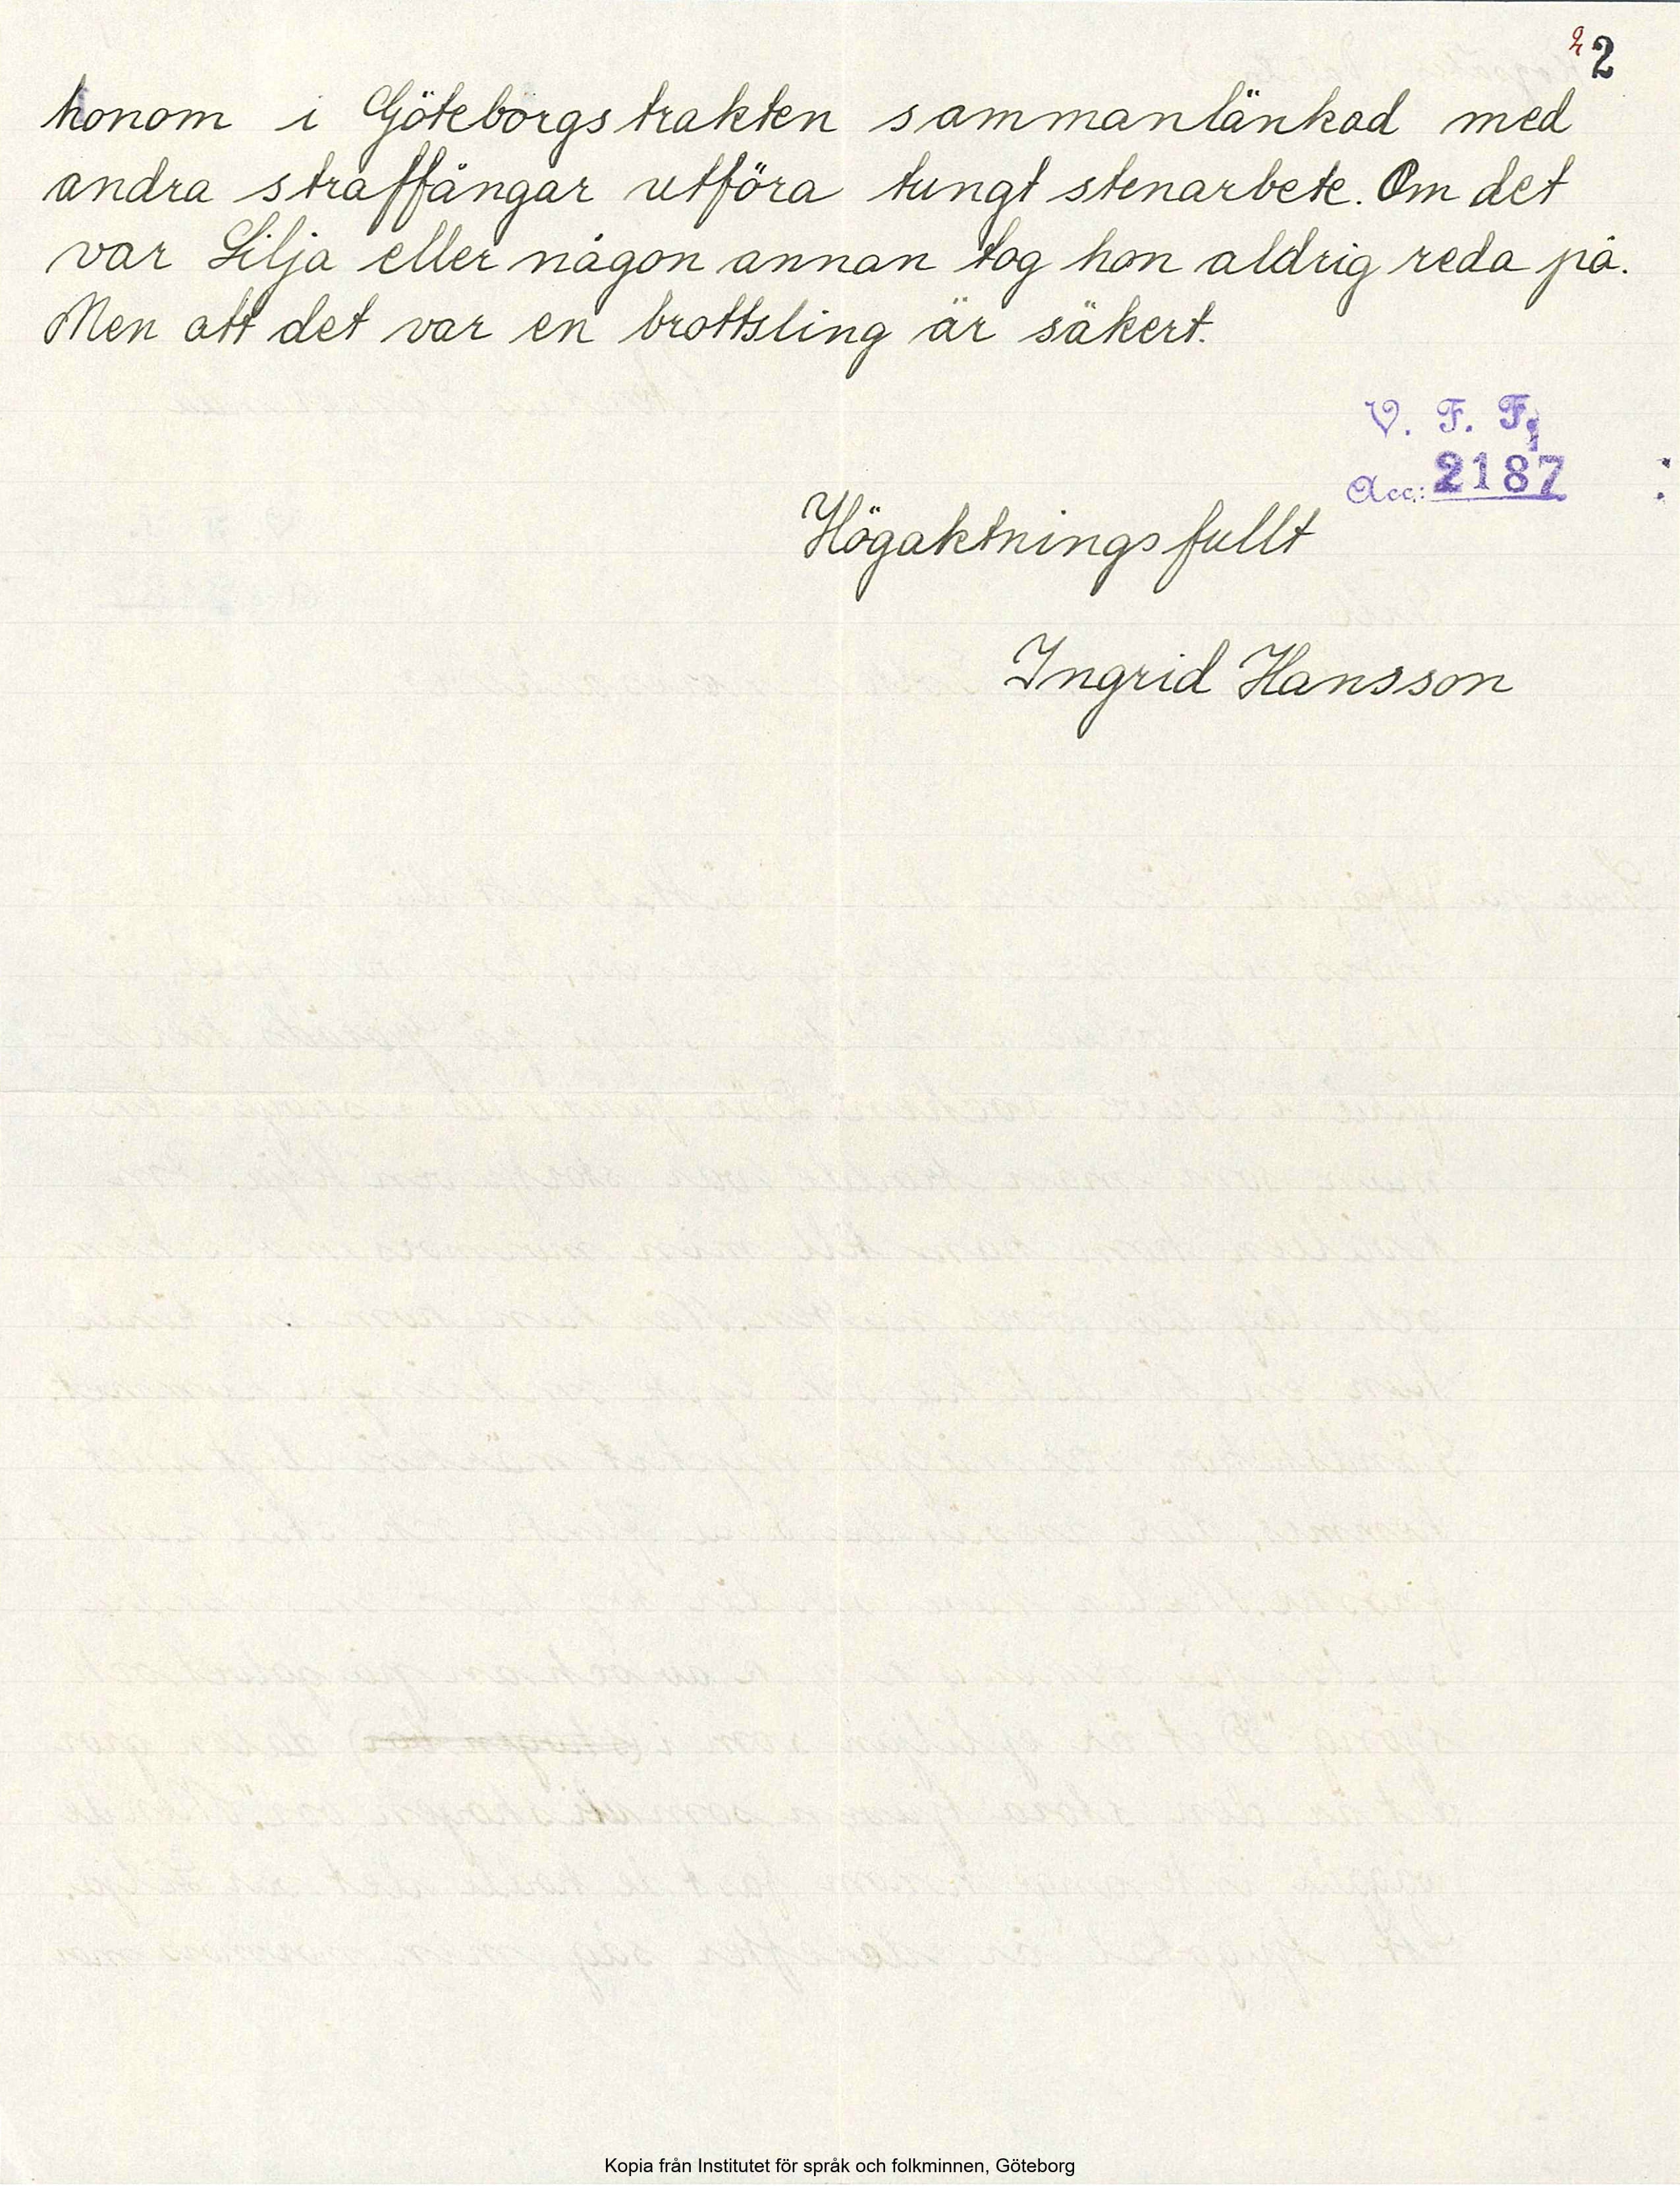 2 2
honom i Göteborgstrakten sammanlänkad med
andra straffångar utföra tungt stenarbete. Om det
var Lilja eller någon annan tog hon aldrig reda på.
Men att det var en brottsling är säkert.
V. F. F.
Acc.: 2187
Högaktningsfullt
Ingrid Hansson
Kopia från Institutet för språk och folkminnen, Göteborg